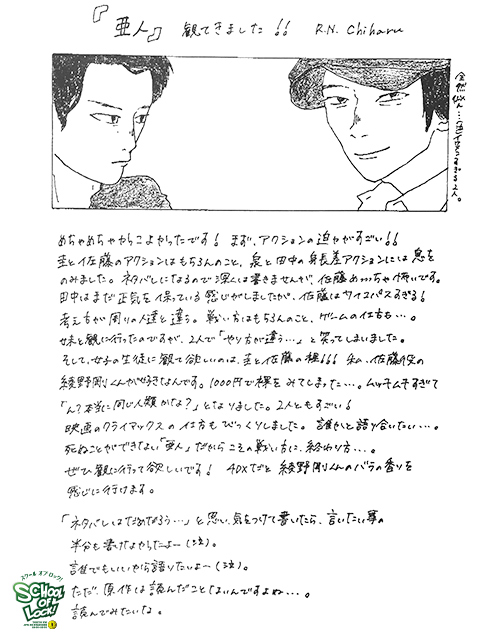 『亜人』観てきました!! R.N. Chiharu
全然似ん…
めちゃめちゃかっこよかったです! まず、アクションの迫力がすごい!!
圭と佐藤のアクションはもちろんのこと、泉と田中の身長差アクションには息を
のみました。ネタバレになるので深くは書きませんが、佐藤めっっちゃ怖いです。
田中はまだ正気を保っている感じがしましたが、佐藤はサイコパスすぎる!
考え方が周りの人達と違う。戦い方はもちろんのこと、ゲームの仕方も…。
妹と観に行ったのですが、2人で「やり方が違う…」と笑ってしまいました。
そして、女子の生徒に観て欲しいのは、圭と佐藤の裸!!! 私、佐藤役の
綾野剛くんが好きなんです。1000円で裸をみてしまった…。ムッチムチすぎて
「ん?本当に同じ人類かな?」となりました。2人ともすごい!
映画のクライマックスの仕方もびっくりしました。誰かと語り合いたい…。
死ぬことができない「亜人」だからこその戦い方に、終わり方…。
ぜひ観に行って欲しいです! 4DXだと綾野剛くんのバラの香りを
感じに行けます。
「ネタバレはだめだろう…」と思い、気をつけて書いたら、言いたい事の
半分も書けなかったよー(泣)。
誰でもいいから語りたいよー(泣)。
ただ、原作は読んだことないんですよね…。
読んでみたいな。
スクールオブロック!
SCHOOL OF LOCK!